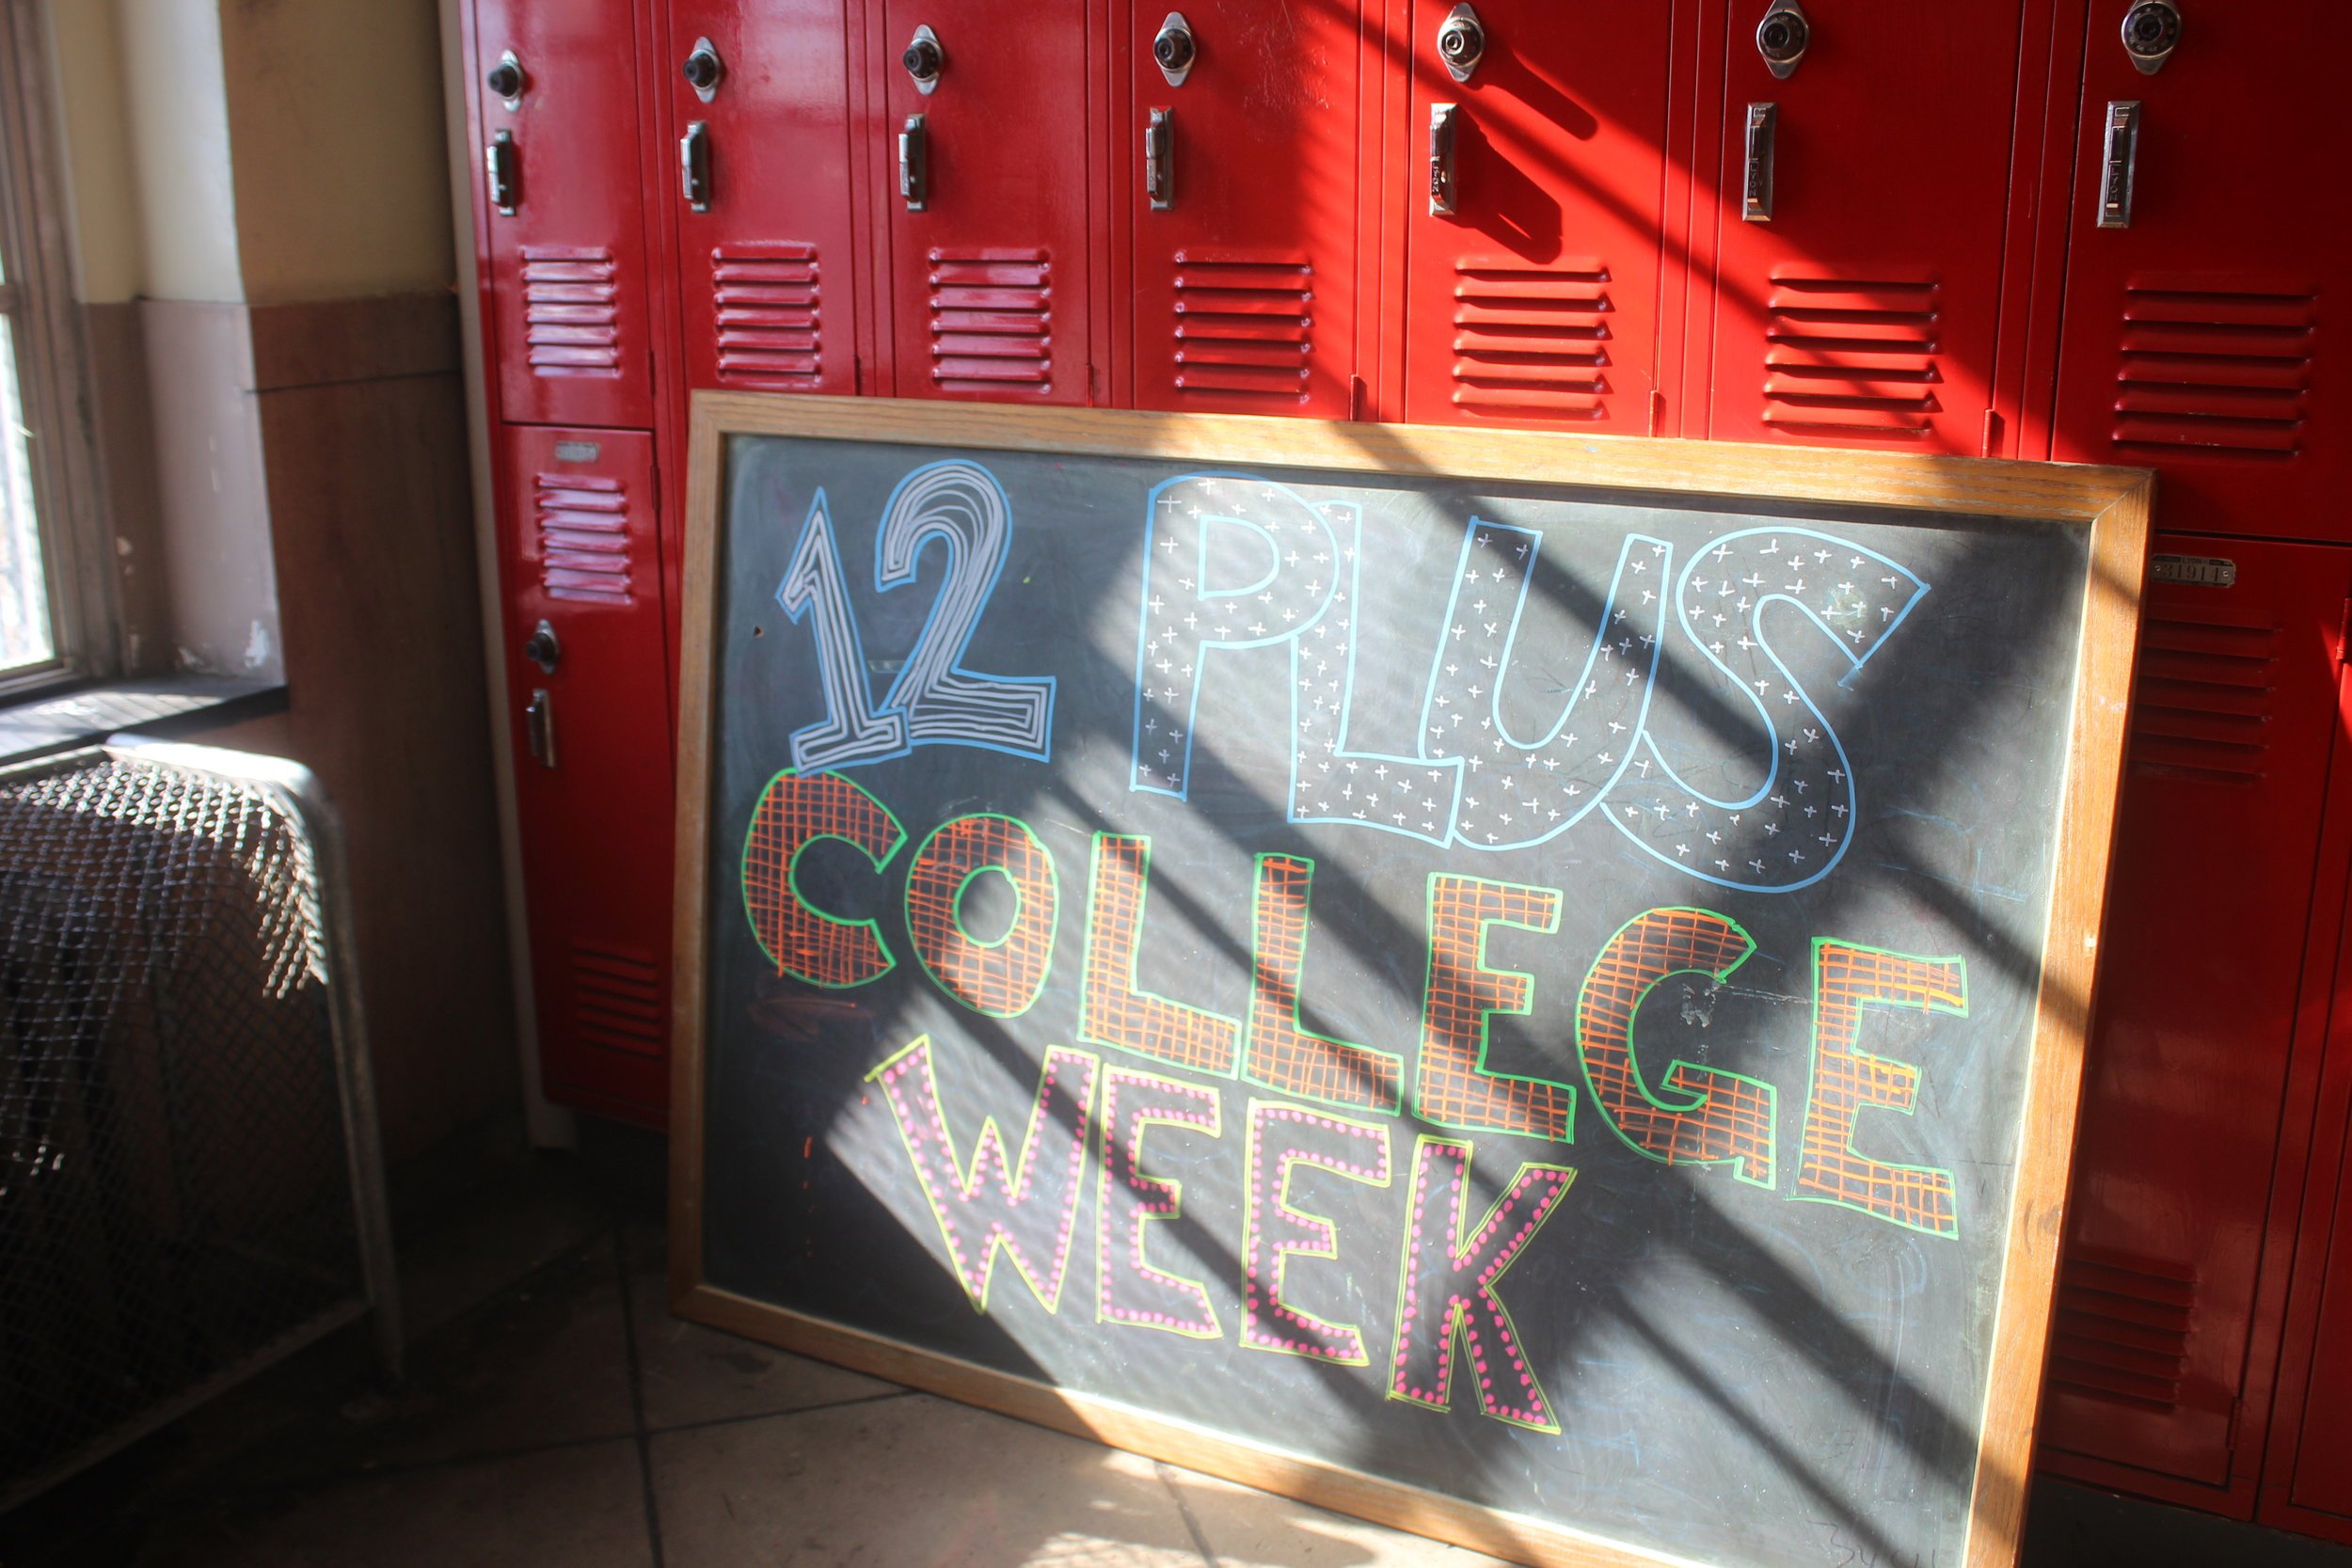 12 PLUS
COLLEGE
WEEK